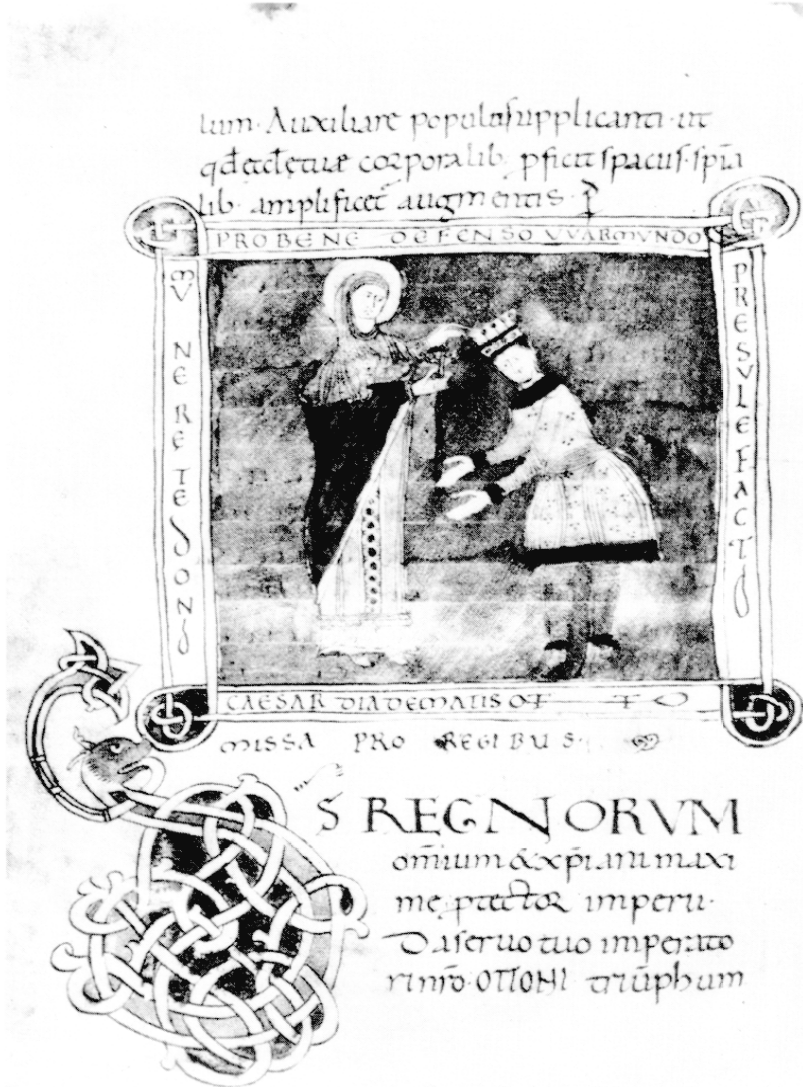 lum · Auxiliare populo supplicanti · ut
qđ ęcclę tuæ corporalib · pficit spaciis · spīa
lib · amplificet augmentis · P
PRO BENE DEFENSO VVARMVNDO
PRESVLE FACTO
MVNERE TE DONO
CAESAR DIADEMATIS OTTO
MISSA PRO REGIBUS ·
DS REGNORVM
om̄ium & xp̄iani maxi
me ptector imperii ·
Da seruo tuo imperato
ri nr̄o · OTTONI triūphum